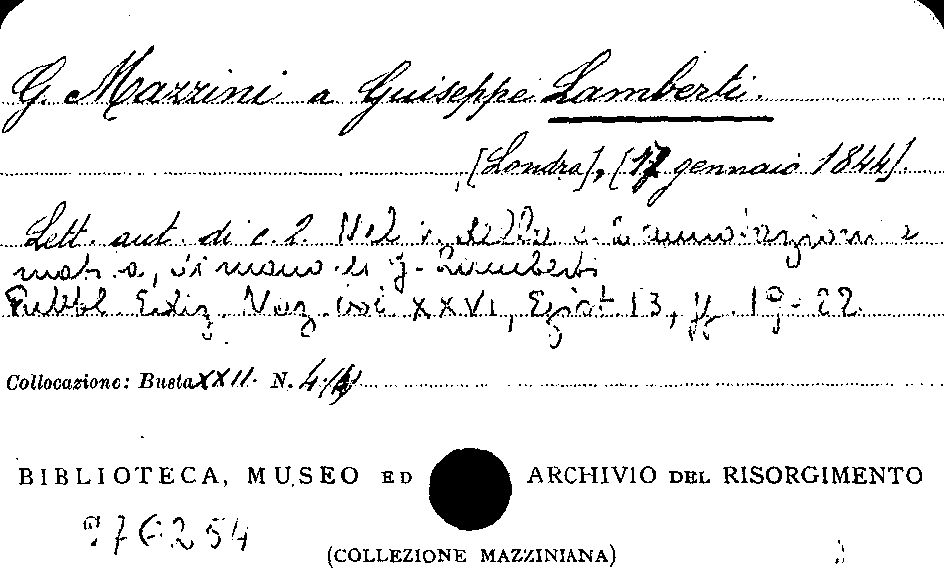 G. Mazzini a Guiseppe Lamberti.
[Londra], [17 gennaio 1844].
Lett. aut. di c. 2. Nel v. della c. 2 annotazioni a
mat. a, di mano di G. Lamberti
Pubbl. Ediz. Naz. XXVI, Epist. 13, pp. 19-22.
Collocazione: Busta XXII. N. 4
BIBLIOTECA, MUSEO ED ARCHIVIO DEL RISORGIMENTO
76254
(COLLEZIONE MAZZINIANA)